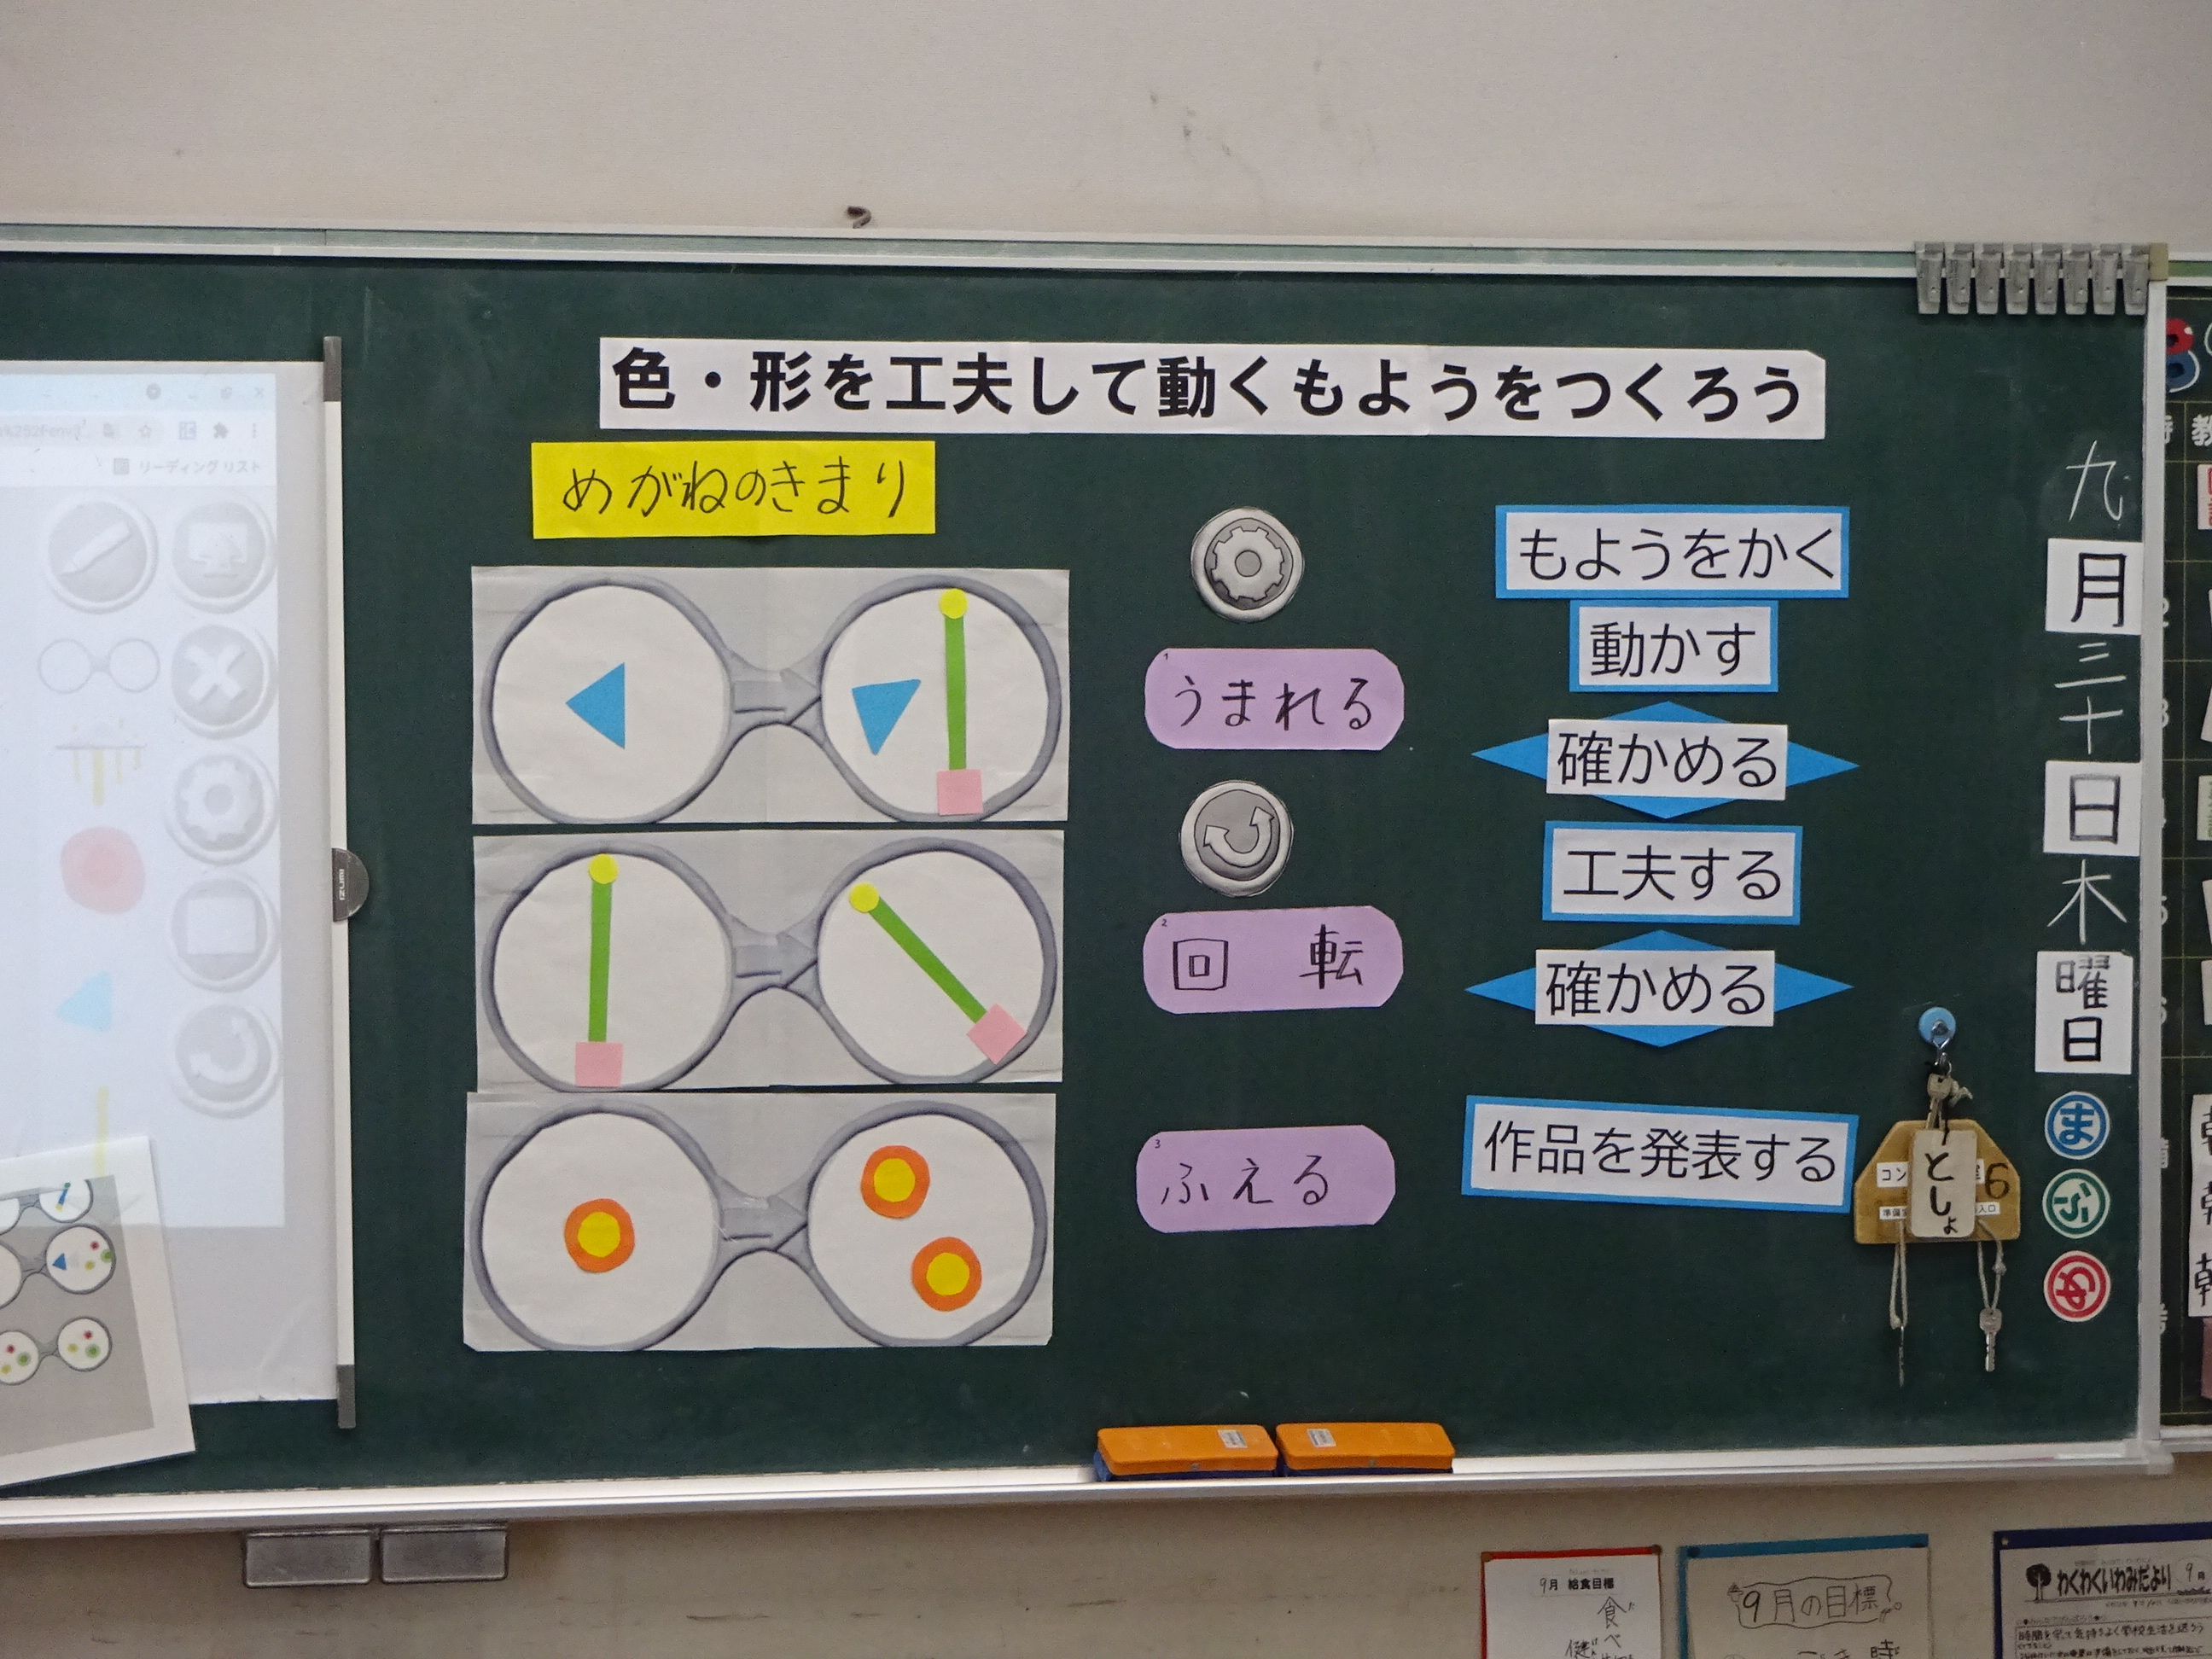 色・形を工夫して動くもようをつくろう
めがねのきまり
リーディングリスト
1
うまれる
2
回 転
3
ふえる
もようをかく
動かす
確かめる
工夫する
確かめる
作品を発表する
九月三十日木曜日
ま
ふ
め
としょ
コン
6
準備
入口
IZUMI
9月 給食目標
食べ
9月の目標
わくわくいわみだより
9月